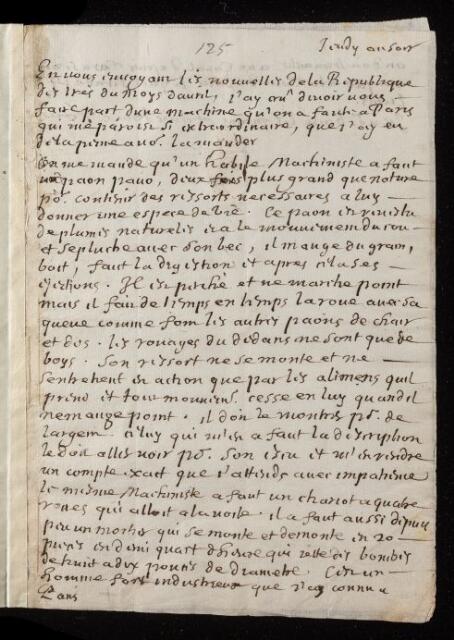 125 Jeudy au soir
En vous envoyant les nouvelles de la Republique
des lres du Moys davril, j'ay cru devoir vous
faire part dune machine qu'on a faite a Paris
qui me paroist si extraordinaire, que j'ay eu
de la peine a vo. la mander
On me mande qu'un habile Machiniste a faut
un paon pavo, deux fois plus grand que nature
po. contenir des ressorts necessaires a luy
donner une espece de vie. Ce paon est revestu
de plumes naturelles et a le mouvement du cou
et sepluche avec son bec, il mange du grain,
boit, faut la digestion et apres cela ses
ejections. Il est perché et ne marche point
mais il fait de temps en temps la roue avec sa
queue comme font les autres paons de chair
et dos. les rouages du dedans ne sont que de
boys. Son ressort ne se monte et ne
sentretient en action que par les alimens quil
prend et tout mouvemt. cesse en luy quand il
ne mange point. il doit le montrer po. de
largent. celuy qui m'en a faut la description
le doit aller voir po. Son ecu et m'en rendre
un compte exact que j'attends avec impatience
le mesme Machiniste a faut un chariot a quatre
roues qui alloit a la voile. il a faut aussi depuis
peu un mortier qui se monte et demonte en 20
pieces en demi quart d'heure qui jette des bombes
de huit a dix pouces de diametre. C'est un
homme fort industrieux que j'ay connu a
Paris